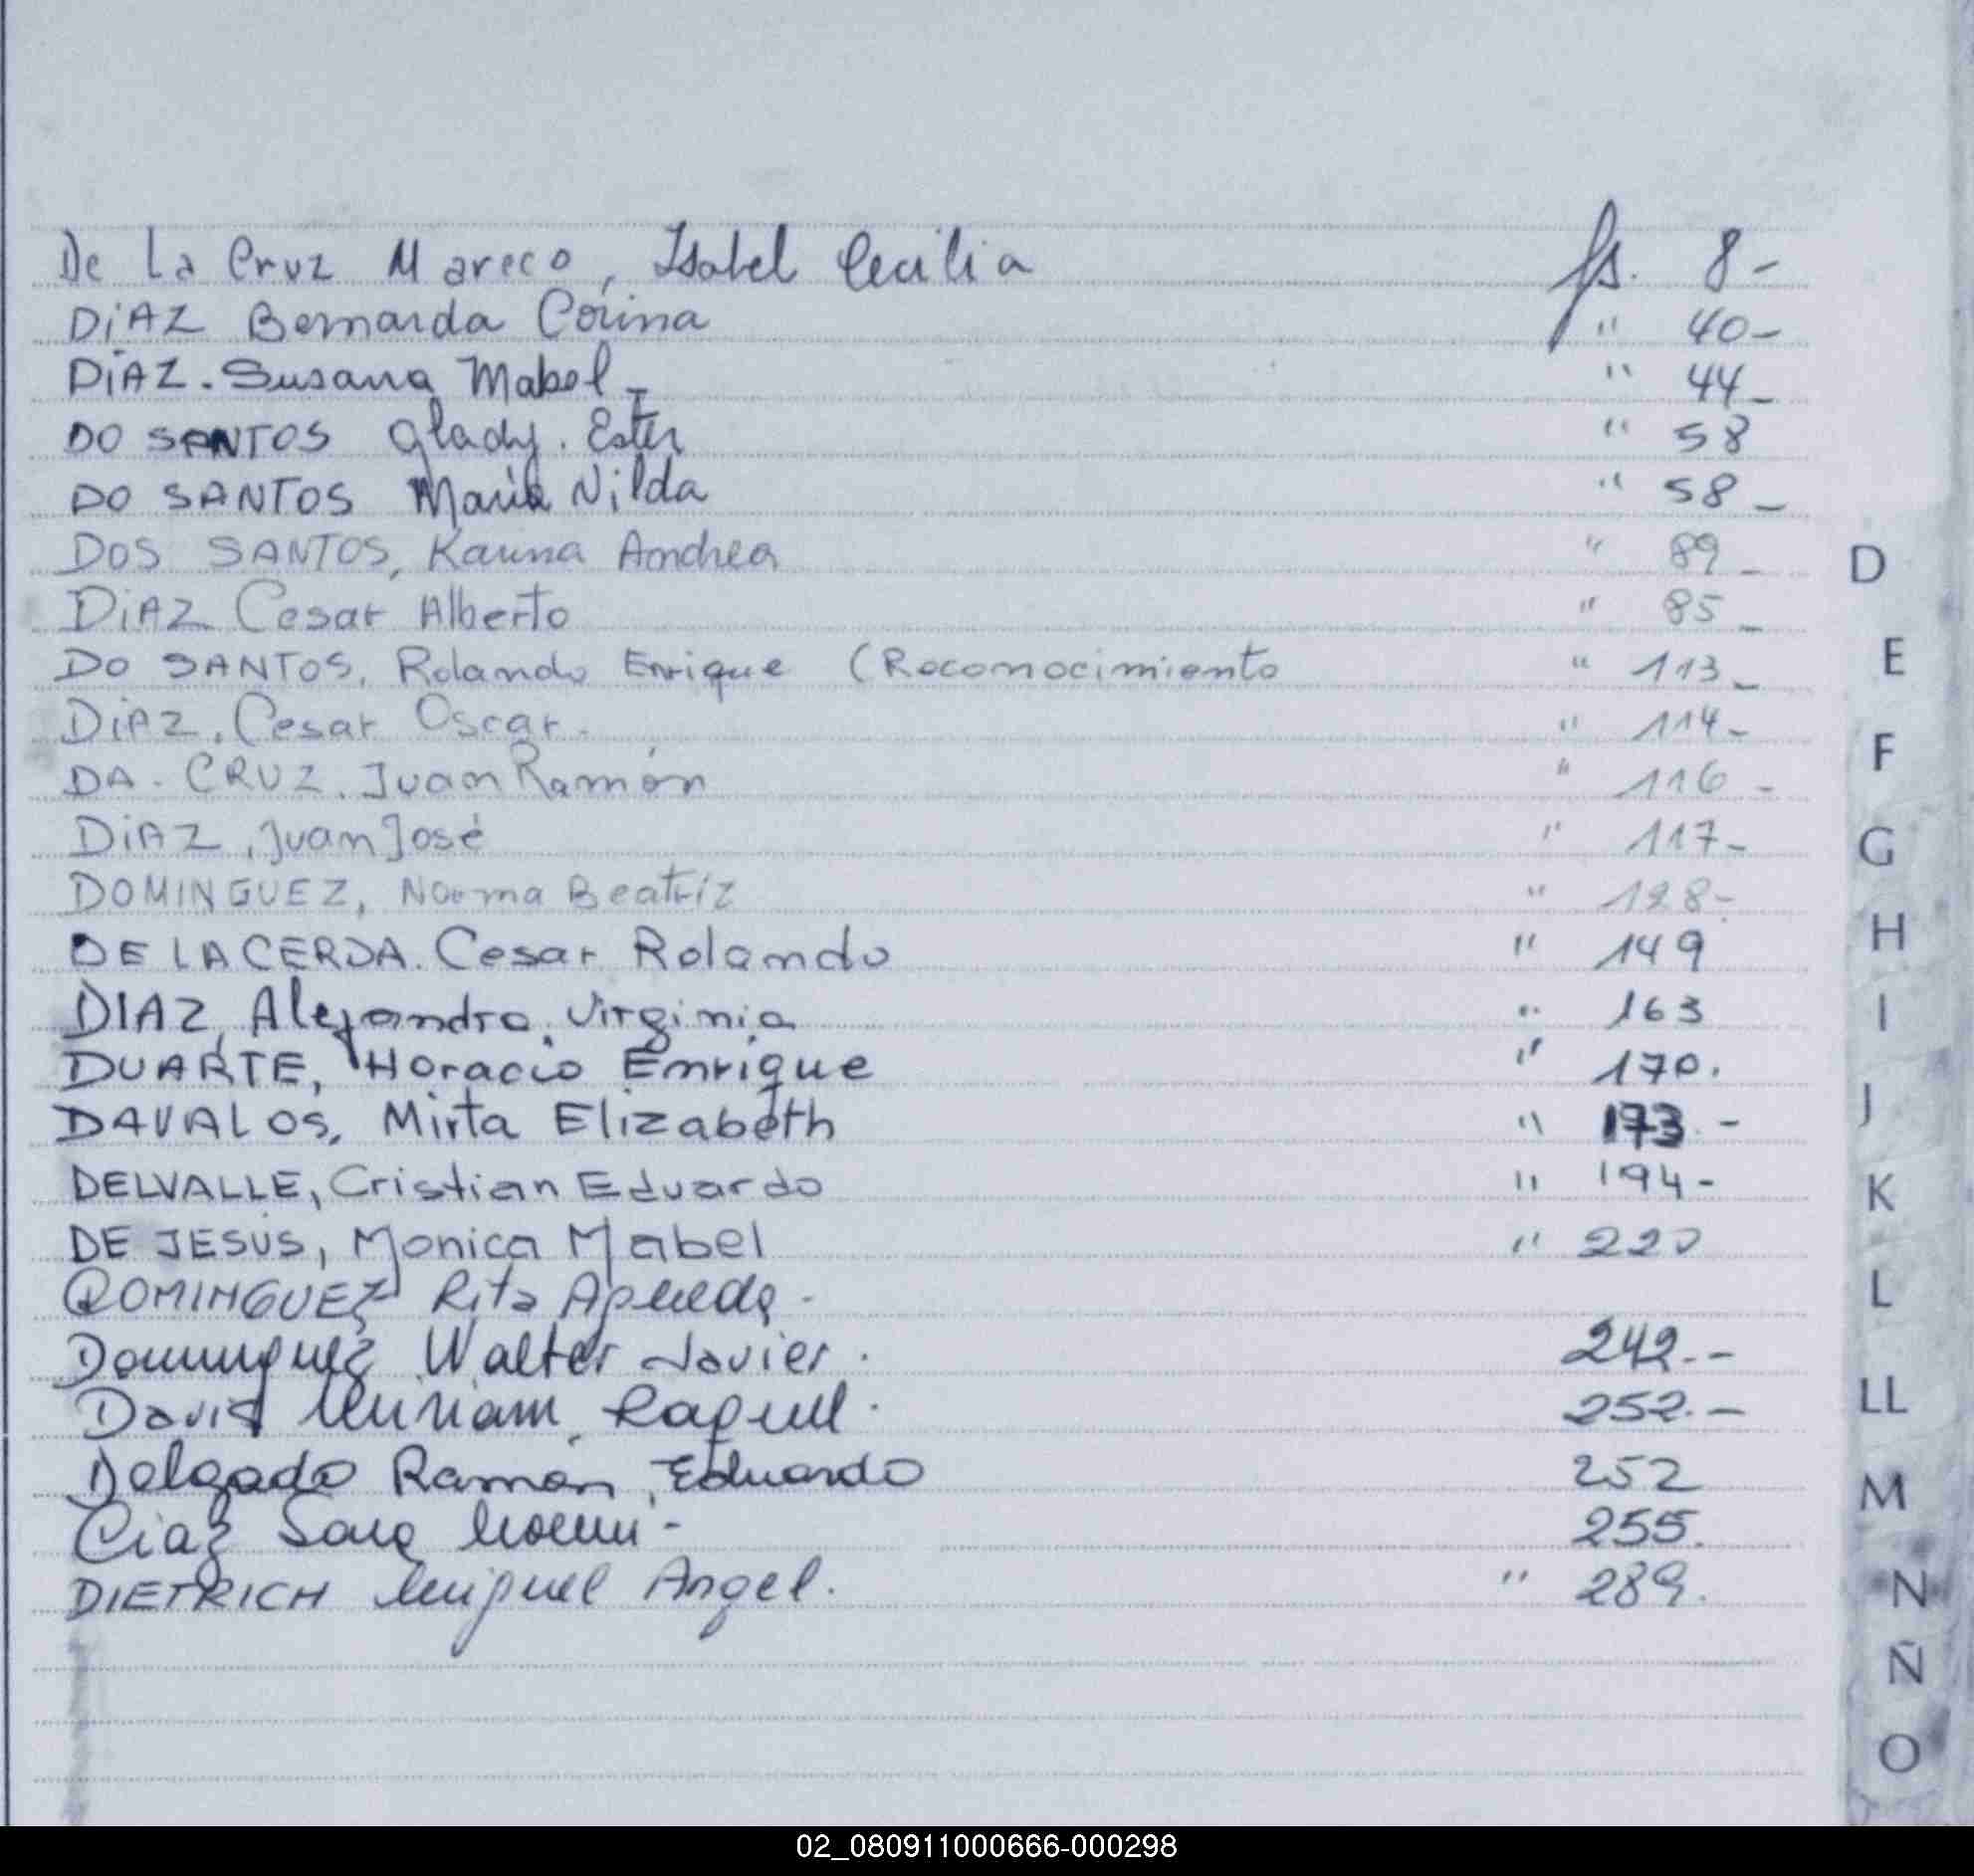 De La Cruz Mareco, Isabel Cecilia fs. 8-
DiAZ Bernarda Corina " 40-
DiAZ. Susana Mabel - " 44-
DO SANTOS Glady. Ester " 58
DO SANTOS Maria Nilda " 58-
DOS SANTOS, Karina Andrea " 89-
DiAZ Cesar Alberto " 85-
DO SANTOS, Rolando Enrique (Reconocimiento " 113-
DiAZ, Cesar Oscar. " 114-
DA. CRUZ. Juan Ramón " 116-
DiAZ, Juan José " 117-
DOMINGUEZ, Norma Beatriz " 128-
DE LA CERDA. Cesar Rolando " 149
DIAZ, Alejandra Virginia " 163
DUARTE, Horacio Enrique " 170.
DAVALOS, Mirta Elizabeth " 173.-
DELVALLE, Cristian Eduardo " 194-
DE JESUS, Monica Mabel " 220
DOMINGUEZ Rita
Dominguez Walter Javier. 242.-
David Miriam Raquel. 252.-
Delgado Ramón, Eduardo 252
Diaz Sara Noemi - 255.
DIETRICH Miguel Angel. " 289.
D
E
F
G
H
I
J
K
L
LL
M
N
Ñ
O
02_080911000666-000298